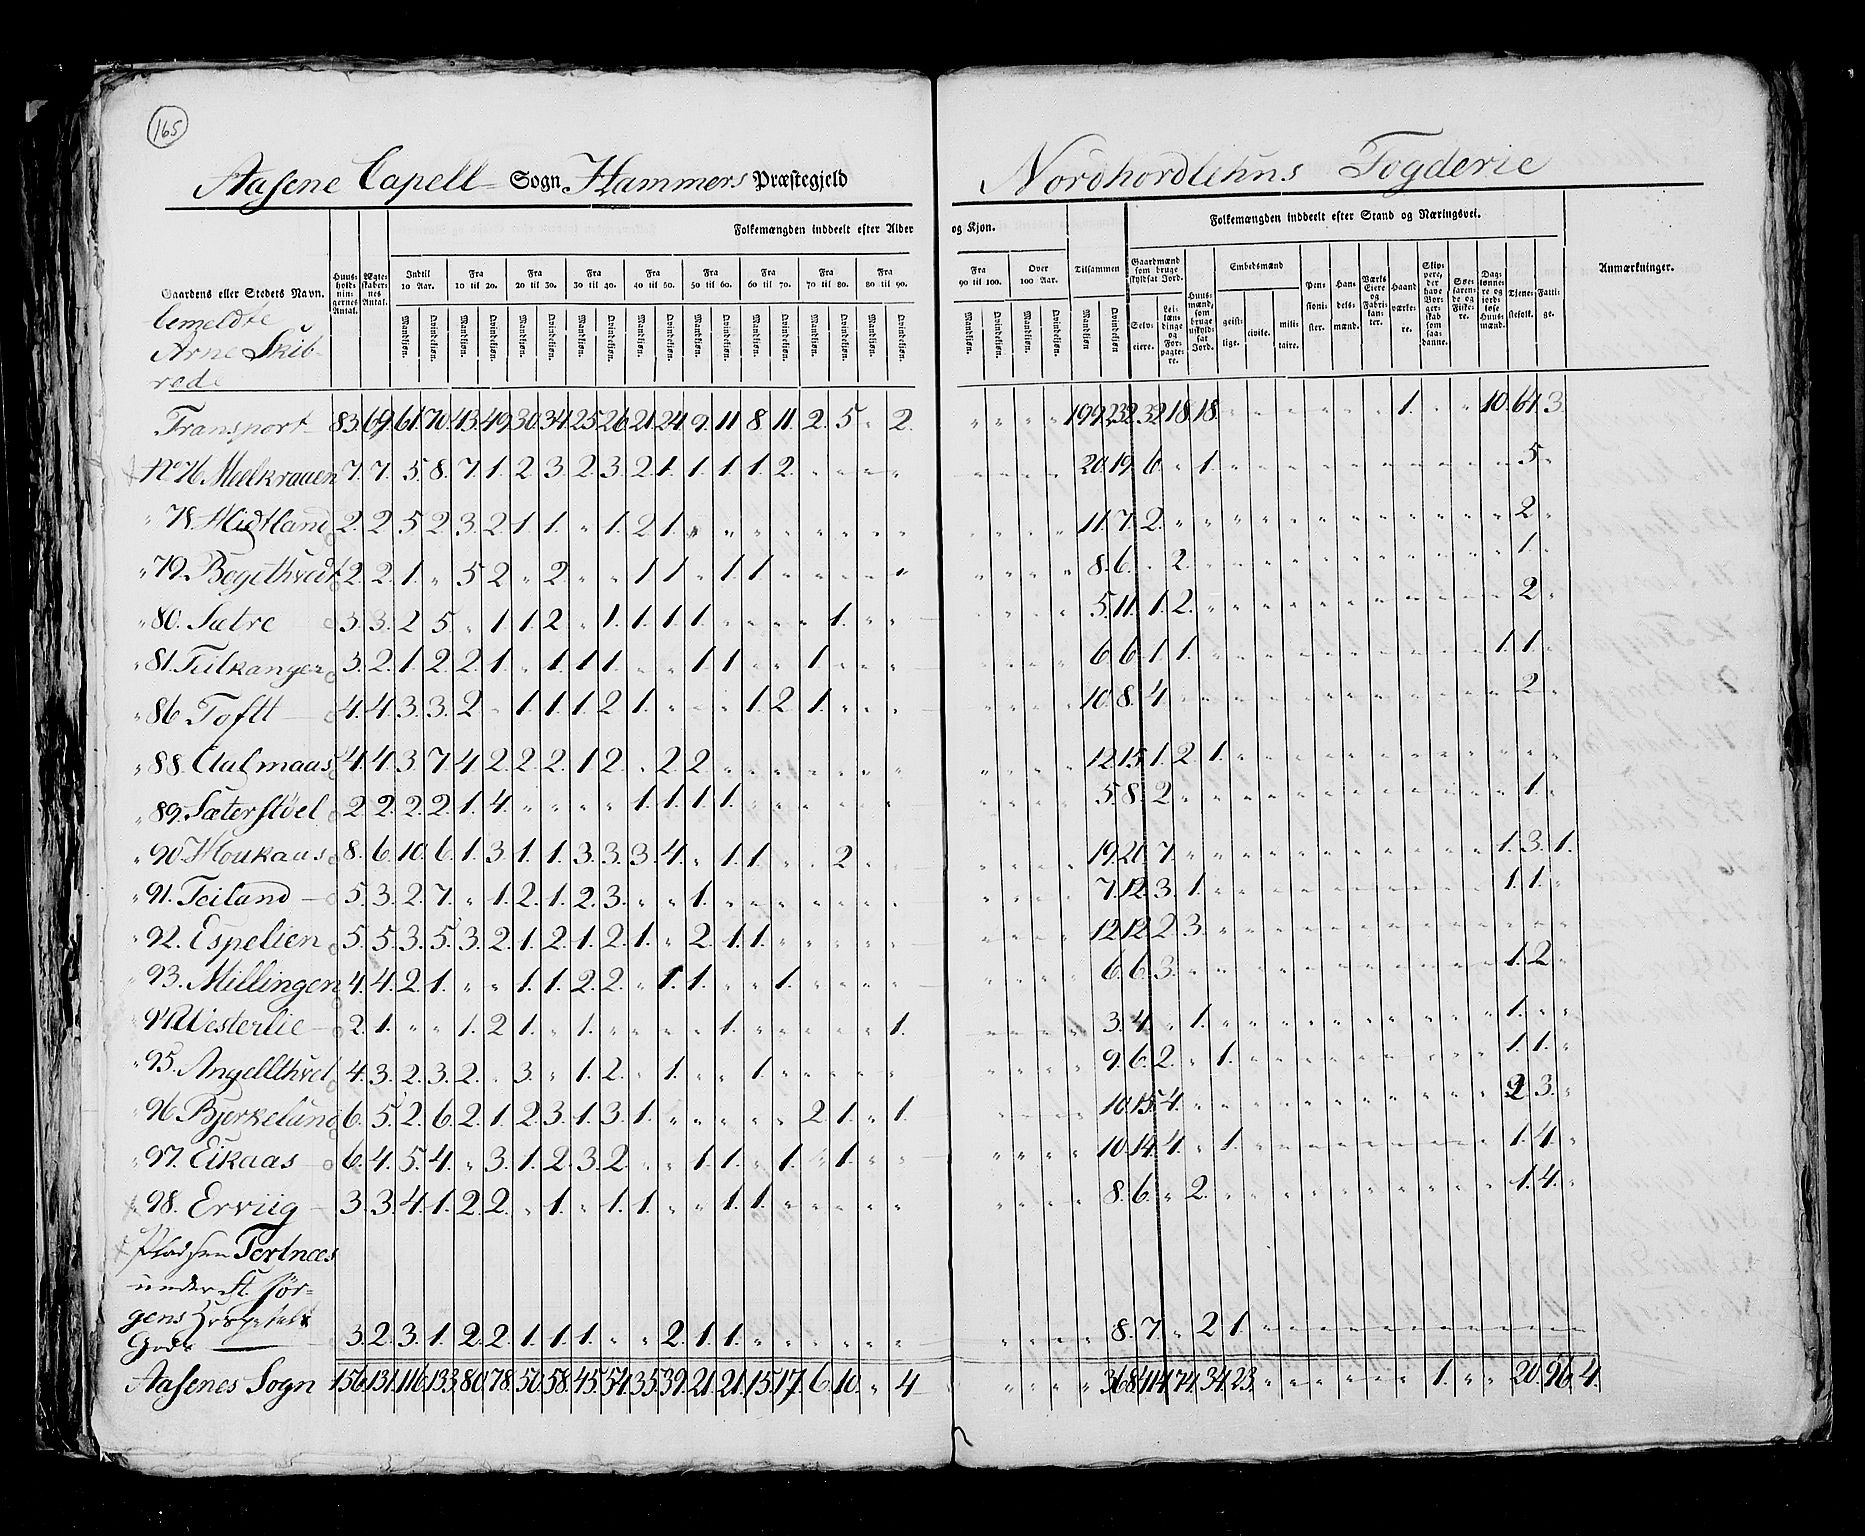 165
Aasene Capell Sogn Hammers Præstegjeld
Nordhordlehns Fogderie
Folkemængden inddeelt efter Alder og Kjøn.
Folkemængden inddeelt efter Stand og Næringsvei.
Gaardens eller Stedets Navn. Huusholdningernes Antal. Ægteskabernes Antal. Indtil 10 Aar. Fra 10 til 20. Fra 20 til 30. Fra 30 til 40. Fra 40 til 50. Fra 50 til 60. Fra 60 til 70. Fra 70 til 80. Fra 80 til 90. Fra 90 til 100. Over 100 Aar. Tilsammen
Gaardmænd som bruge skyldsat Jord. Selveiere. Leilændinge og Forpagtere. Huusmænd, som bruge uskyldsat Jord. Embedsmænd geistlige. civile. militaire. Pensionister. Handelsmænd. Værks Eiere og Fabrikanter. Haandværkere. Skippere, der have Borgerskab som saadanne. Søefarende og Fiskere. Daglønnere og jordløse Huusmænd. Tjenestefolk. Fattige. Anmærkninger.
Mandkjøn. Qvindekjøn. Mandkjøn. Qvindekjøn. Mandkjøn. Qvindekjøn. Mandkjøn. Qvindekjøn. Mandkjøn. Qvindekjøn. Mandkjøn. Qvindekjøn. Mandkjøn. Qvindekjøn. Mandkjøn. Qvindekjøn. Mandkjøn. Qvindekjøn. Mandkjøn. Qvindekjøn. Mandkjøn. Qvindekjøn. Mandkjøn Qvindekjøn
bemeldte
Arne Skib-
rede
Transport 83. 69. 61. 70. 43. 49. 30. 34. 25. 26. 21. 24. 9. 11. 8. 11. 2. 5. " 2. " " " " 199. 232. 32. 18. 18. " " " " " " 1. " " 10. 64. 3.
No 76 Meelkraaen 7. 7. 5. 8. 7. 1. 2. 3. 2. 3. 2. 1. 1. 1. 1. 2. " " " " " " " " 20. 19. 6. " 1. " " " " " " " " " " 5. "
" 78. Midtland 2. 2. 5. 2. 3. 2. 1. 1. " 1. 2. 1. " " " " " " " " " " " " 11. 7. 2. " " " " " " " " " " " " 2. "
" 79. Bogethvedt 2. 2. 1. " 5. 2. " 2. " " 1. 1. " 1. 1. " " " " " " " " " 8. 6. " 2. " " " " " " " " " " " 1. "
" 80. Sætre 3. 3. 2. 5. " 1. 1. 2. " 1. 1. 1. 1. " " " " 1. " " " " " " 5. 11. 1. 2. " " " " " " " " " " " 2. "
" 81. Tulkanger 3. 2. 1. 2. 2. 1. " 1. 1. 1. " " 1. 1. " " 1. " " " " " " " 6. 6. 1. 1. " " " " " " " " " " 1. 1. "
" 86. Toftt 4. 4. 3. 3. 2. " 1. 1. 1. 2. 1. " " " 1. 2. 1. " " " " " " " 10. 8. 4. " " " " " " " " " " " " 2. "
" 88. Aalmaas 4. 4. 3. 7. 4. 2. 2. 2. 1. 2. " 2. 2. " " " " " " " " " " " 12. 15. 1. 2. 1. " " " " " " " " " " " "
" 89. Sæterstøel 2. 2. 2. 2. 1. 4. " " " " 1. 1. 1. 1. " " " " " " " " " " 5. 8. 2. " " " " " " " " " " " " 1. "
" 90. Houkaas 8. 6. 10. 6. 1. 3. 1. 1. 3. 3. 3. 4. " 1. 1. " " 2. " " " " " " 19. 21. 7. " " " " " " " " " " " 1. 3. 1.
" 91. Teiland 5. 3. 2. 7. " 1. 2. 1. 2. 3. " " 1. " " " " " " " " " " " 7. 12. 3. 1. " " " " " " " " " " 1. 1. "
" 92. Espelien 5. 5. 3. 5. 3. 2. 1. 2. 1. 2. 1. " 2. 1. 1. " " " " " " " " " 12. 12. 2. 3. " " " " " " " " " " " " "
" 93. Millingen 4. 4. 2. 1. " " 1. 1. 2. 2. " 1. 1. " " 1. " " " " " " " " 6. 6. 3. " " " " " " " " " " " 1. 2. "
" 94. Westerlie 2. 1. " " 1. 2. 1. " 1. " " " " 1. " " " " " 1. " " " " 3. 4. " 1. " " " " " " " " " " 1. " "
" 95. Angellthvet 4. 3. 2. 3. 2. " 3. " 1. 2. " 1. " " 1. " " " " " " " " " 9. 6. 2. " 1. " " " " " " " " " 1. 1. "
" 96. Bjerkelund 6. 5. 2. 6. 2. 1. 2. 3. 1. 3. 1. " " " " " 2. 1. " 1. " " " " 10. 15. 4. " " " " " " " " " " " 2. 3. "
" 97. Eikaas 6. 4. 5. 4. " 3. 1. 2. 3. 2. " " 1. 1. " 1. " 1. " " " " " " 10. 14. 4. " 1. " " " " " " " " " 1. 4. "
" 98. Erviig 3. 3. 4. 1. 2. 2. " 1. " 1. 1. " " 1. 1. " " " " " " " " " 8. 6. " 2. " " " " " " " " " " 1. 4. "
Pladsen Tertnæs
under St. Jør-
gens Hospitals
Gods 3. 2. 3. 1. 2. 2. 1. 1. 1. " " 2. 1. 1. " " " " " " " " " " 8. 7. " 2. 1. " " " " " " " " " " " "
Aasenes Sogn 156. 131. 116. 133. 80. 78. 50. 58. 45. 54. 35. 39. 21. 21. 15. 17. 6. 10. " 4 " " " " 368. 414. 74. 34. 23. " " " " " " 1. " " 20. 96. 4.